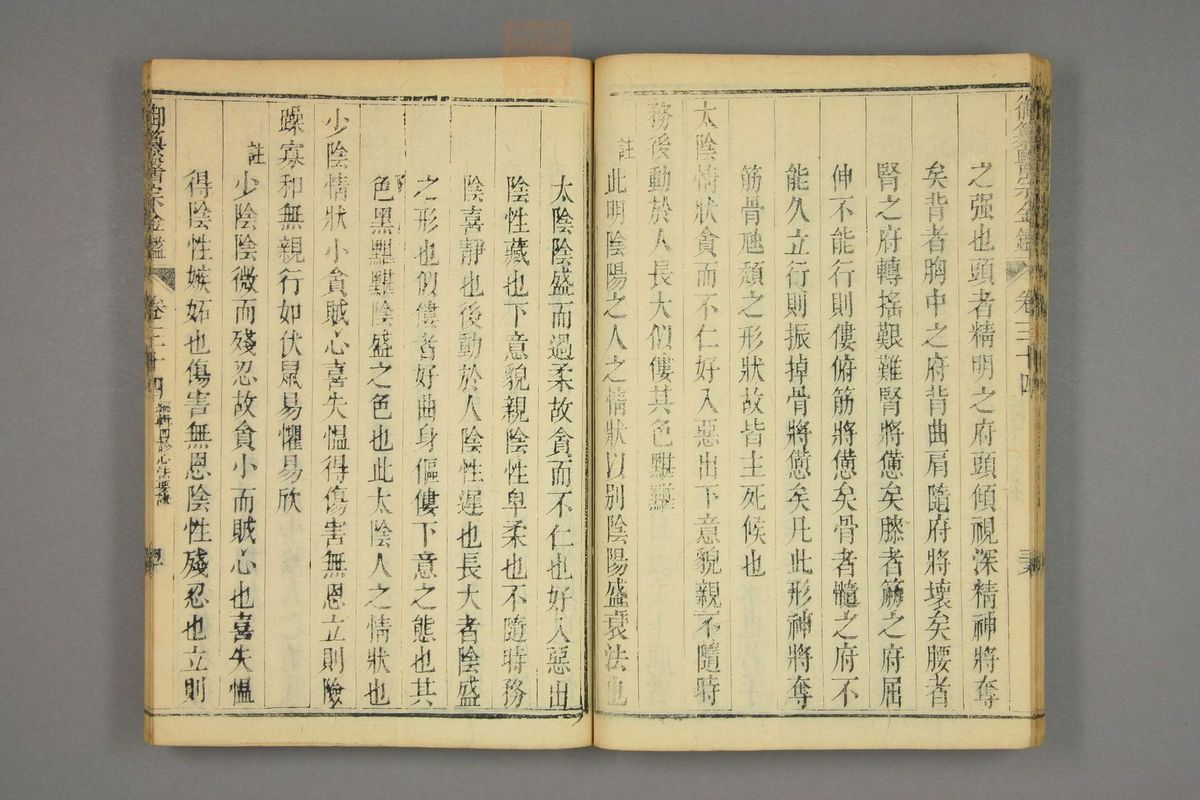 御纂醫宗金鑑 卷三十四
之强也頭者精明之府頭傾視深精神將奪
矣背者胸中之府背曲肩隨府將壞矣腰者
腎之府轉搖艱難腎將憊矣膝者筋之府屈
伸不能行則僂俯筋將憊矣骨者髓之府不
能久立行則振掉骨將憊矣凡此形神將奪
筋骨虺頽之形狀故皆主死候也
太陰情狀貪而不仁好入惡出下意貌親不隨時
務後動於人長大似僂其色黮黮
註此明陰陽之人之情狀以別陰陽盛衰法也
太陰陰盛而過柔故貪而不仁也好入惡出
陰性藏也下意貌親陰性卑柔也不隨時務
陰喜靜也後動於人陰性遲也長大者陰盛
之形也似僂者好曲身傴僂下意之態也其
色黑黮黮陰盛之色也此太陰人之情狀也
少陰情狀小貪賊心喜失慍得傷害無恩立則險
躁寡和無親行如伏鼠易懼易欣
註少陰陰微而殘忍故貪小而賊心也喜失慍
得陰性嫉妬也傷害無恩陰性殘忍也立則
御纂醫宗金鑑 卷三十四 編輯四診心法要訣